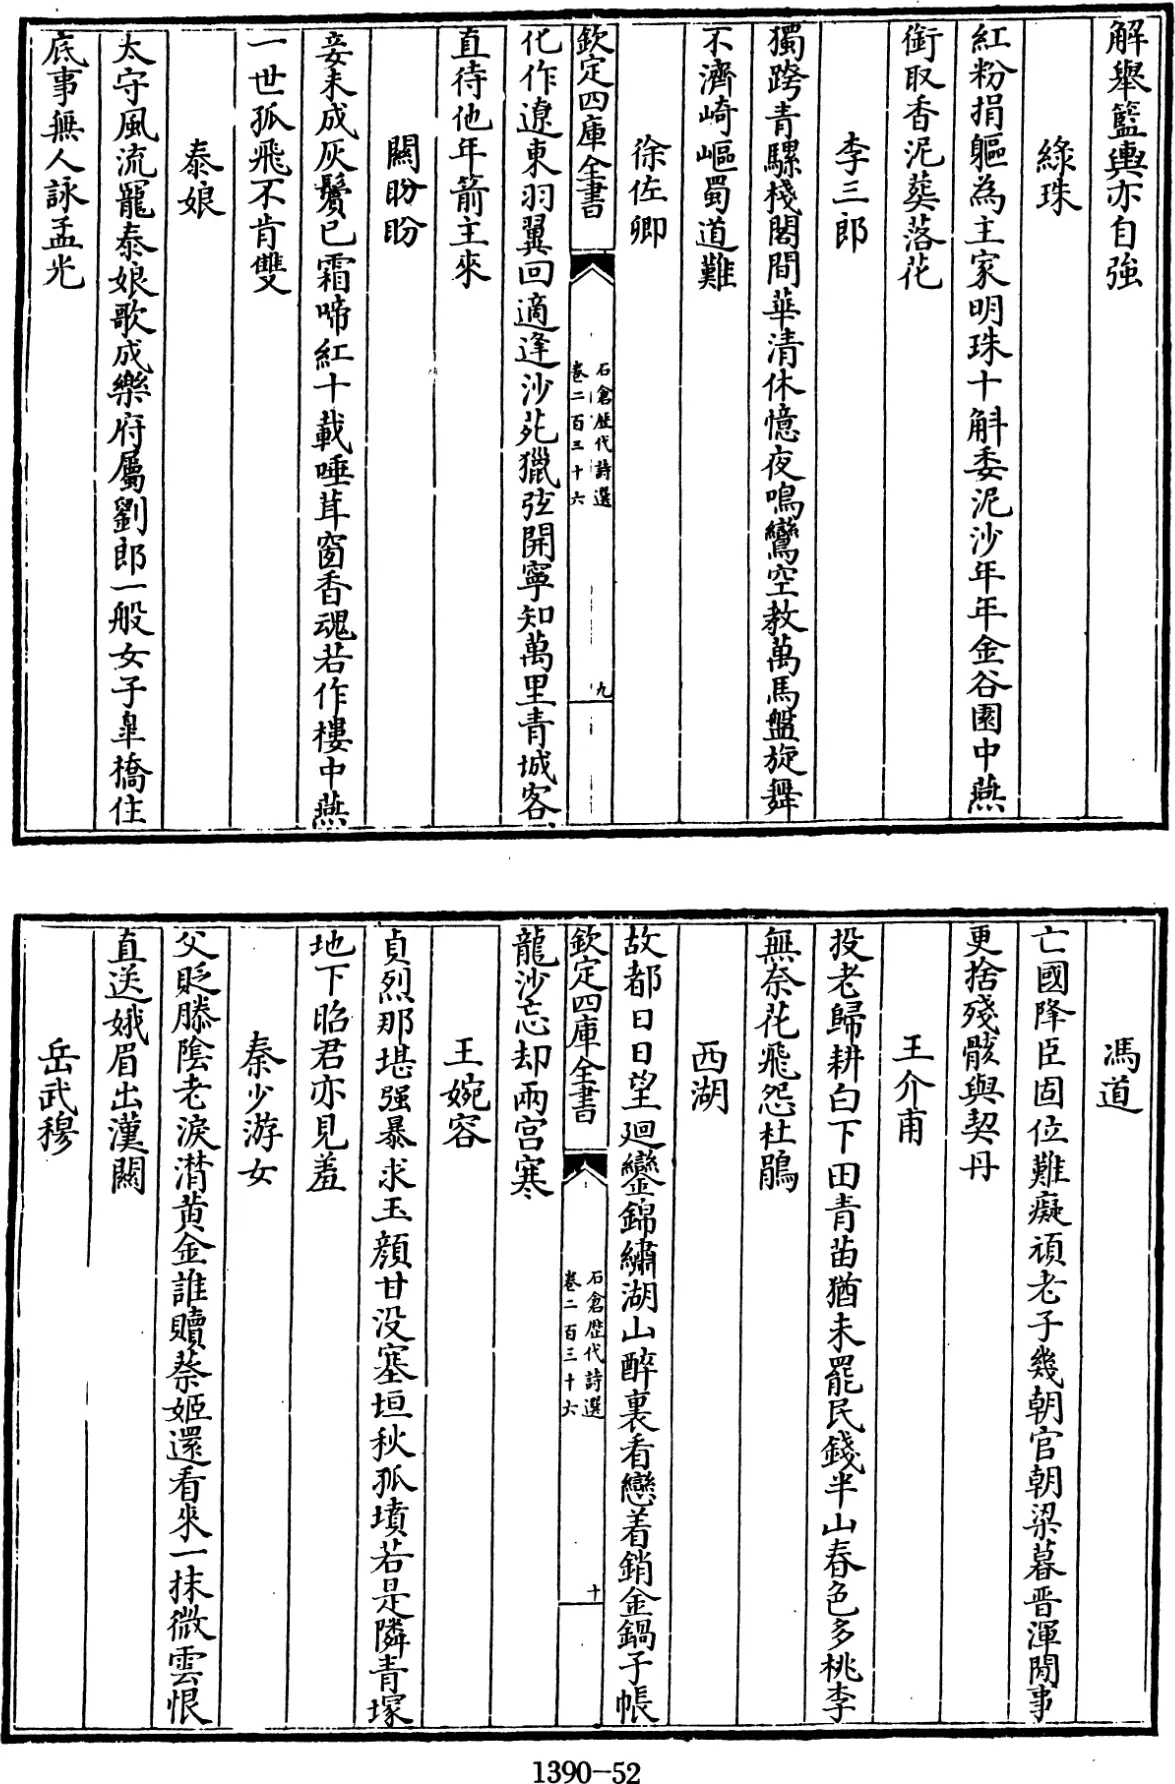 解舉籃輿亦自強
綠珠
紅粉捐軀為主家明珠十斛委泥沙年年金谷園中燕
銜取香泥葬落花
李三郎
獨跨青騾棧閣間華清休憶夜鳴鸞空教萬馬盤旋舞
不濟崎嶇蜀道難
徐佐卿
欽定四庫全書
石倉歷代詩選
卷二百三十六
九
化作遼東羽翼回適逢沙苑獵弦開寧知萬里青城客
直待他年箭主來
關盼盼
妾未成灰鬢已霜啼紅十載唾茸窗香魂若作樓中燕
一世孤飛不肯雙
泰娘
太守風流寵泰娘歌成樂府屬劉郎一般女子臯橋住
底事無人詠孟光
馮道
亡國降臣固位難癡頑老子幾朝官朝梁暮晋渾閒事
更捨殘骸與契丹
王介甫
投老歸耕白下田青苗猶未罷民錢半山春色多桃李
無奈花飛怨杜鵑
西湖
故都日日望迴鑾錦繡湖山醉裏看戀着銷金鍋子帳
欽定四庫全書
石倉歷代詩選
卷二百三十六
十
龍沙忘却兩宮寒
王婉容
貞烈那堪强暴求玉顔甘没塞垣秋孤墳若是隣青塚
地下昭君亦見羞
秦少游女
父貶滕陰老淚潸黄金誰贖蔡姬還看來一抹微雲恨
直送娥眉出漢關
岳武穆
1390-52